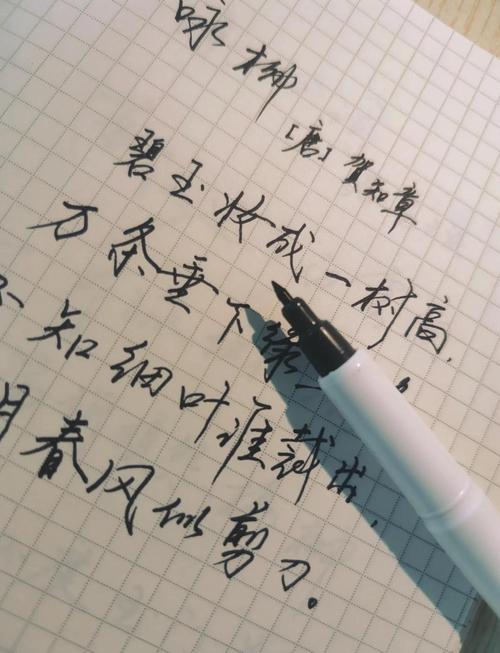 咏柳
[唐] 贺知章
碧玉妆成一树高，
万条垂下绿
不知细叶谁裁出，
月春风似剪刀。